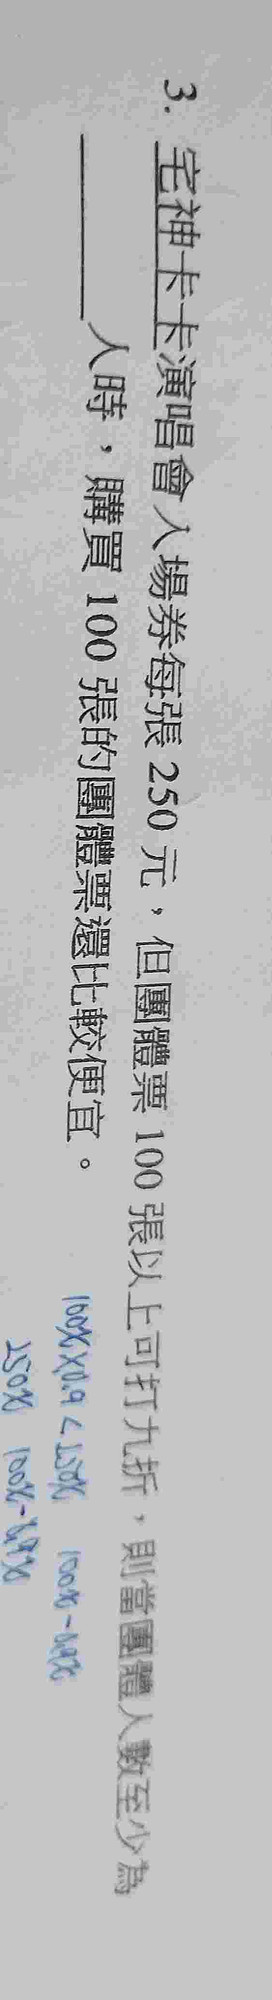 3. 宅神卡卡演唱會入場券每張 250 元，但團體票 100 張以上可打九折，則當團體人數至少為
＿＿＿＿人時，購買 100 張的團體票還比較便宜。
100x×0.9<250x
250x